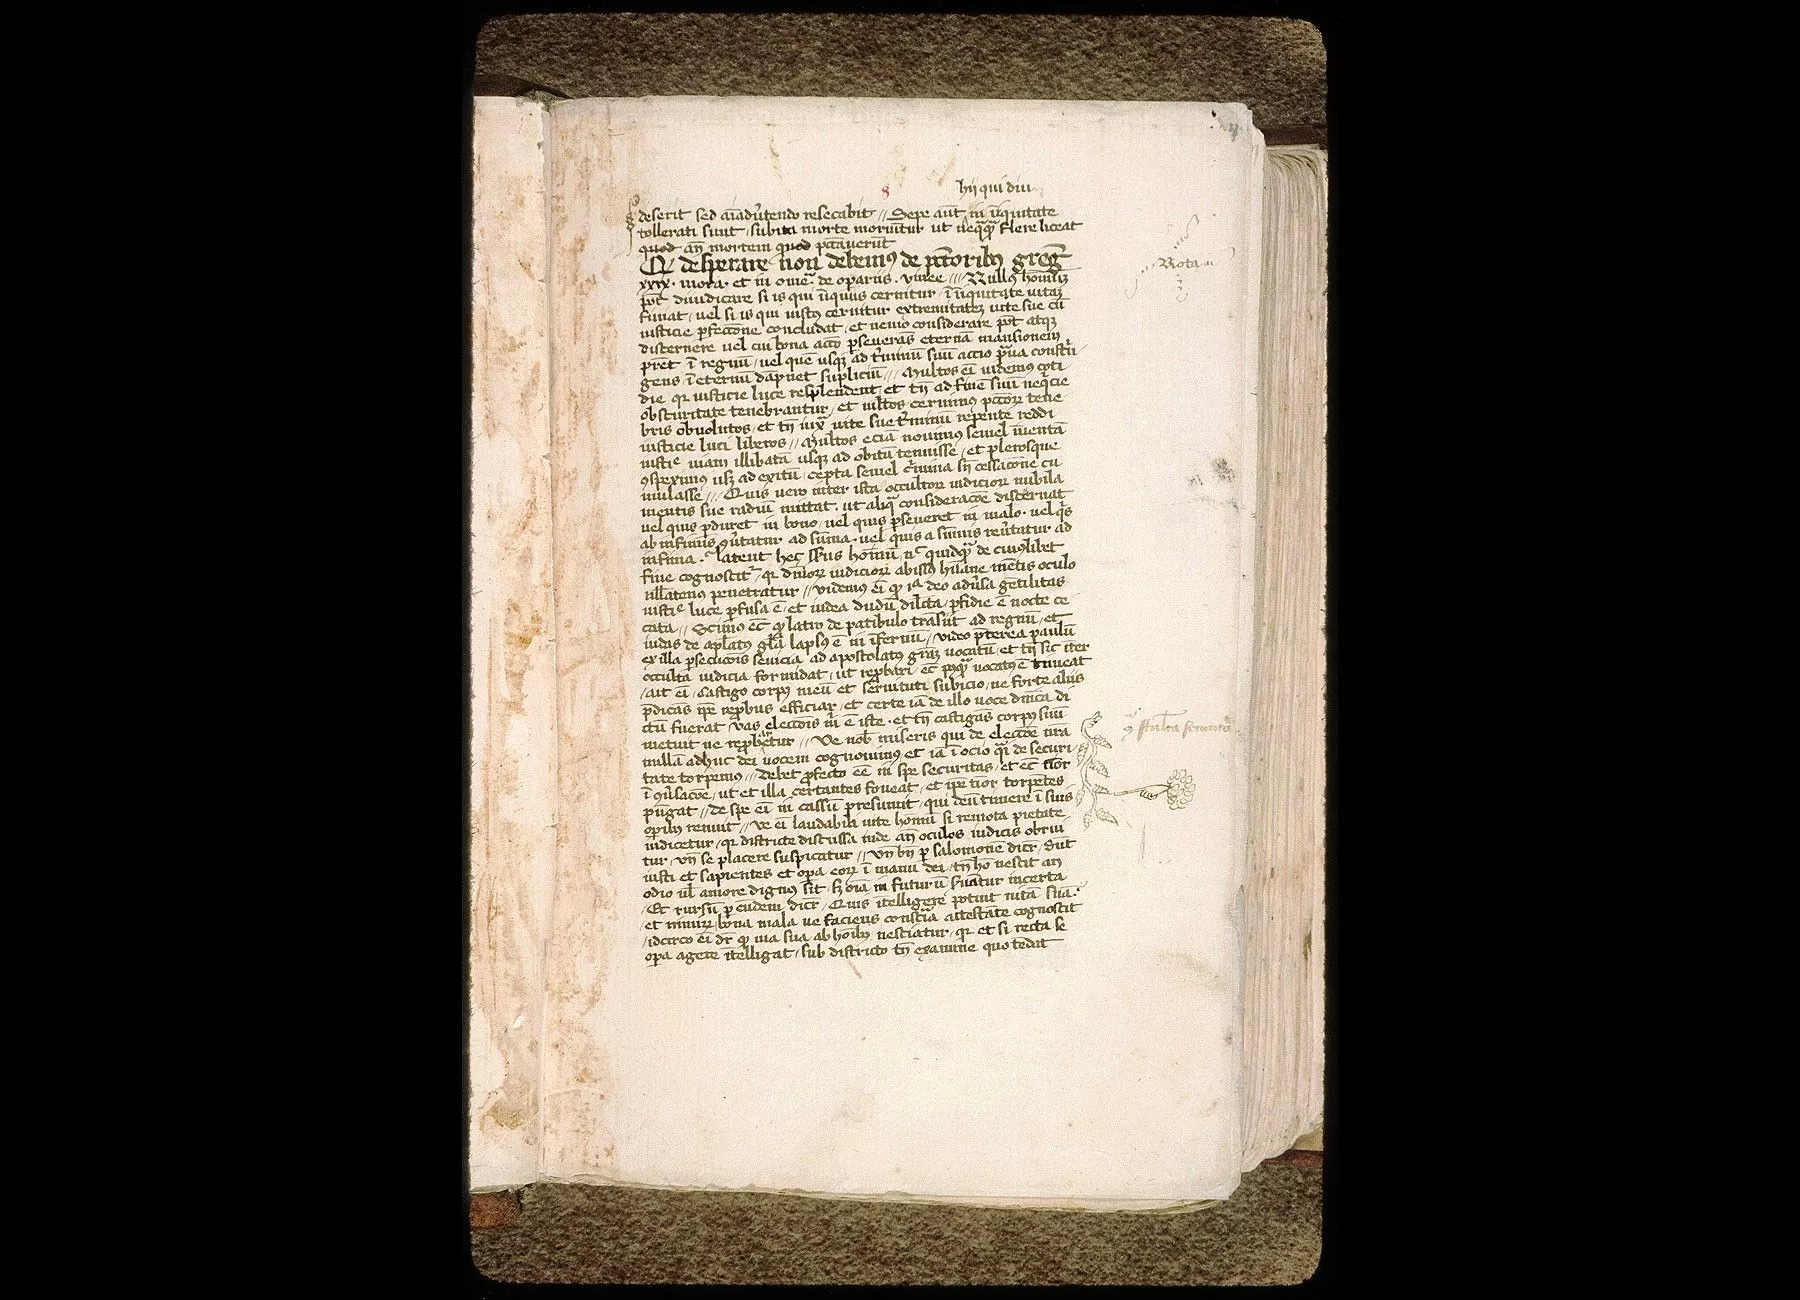 8
hij qui diu
deserit sed aīadūtendo resecabit // Sepe aūt in īiquitate
tollerati sunt / subita morte moriūtur ut neqq̄ flere liceat
quod an̄ mortem quod pctāuerūt
Q desperare non debemus de pctōribus greg
xxix · mora · et in omē · de operariis · vinee // Nullus homīnum
pōt diiudicare si is qui iniquus cernitur / ī iniquitate vitam
finiat / uel si is qui iustus cernitur extremitatem vite sue cū
iusticie pfectōne concludat / et nemo considerare pōt atque
discernere uel cui bona actō pseuerās eternā mansionem
pret ī regnū / uel quē usque ad tminū suū actio praua constri
gens ī eternū dāpnet supliciū // Multos ei videmus coti
die qr iusticie luce resplendent / et tn̄ ad finē suū nequicie
obscuritate tenebrantur / et multos cernimus pctōrum tene
bris obuolutos / et tn̄ iuxta vite sue tminū repente reddi
iusticie luci liberos // Multos eciā nouimus semel inuentā
iusticie viam illibatā usque ad obitū tenuisse / et plerosque
9speximus usque ad exitū / cepta semel crimina sn̄ cessacōne cu
mulasse // Quis uero inter ista occultorum iudiciorum nubila
mentis sue radiū mittat · ut aliqua consideracōe discernat
uel quis pduret in bono / uel quis pseueret in malo · uel quis
ab infimis 9ūtatur ad sūma · uel quis a summis reūtatur ad
infima · latent hec sensus hominū nec quidquā de cuiuslibet
fine cognoscitur / qr diuinorum iudiciorum abissus humane mētis oculo
nullatenus penetratur // videmus ei qr illa deo aduersa gētilitas
iusticie luce pfusa ē / et iudea dudū dilecta / pfidie ē nocte ce
cata // Scimus ec̄ qr latro de patibulo trāsiit ad regnū / et
iudas de apl̄atus glā lapsus ē in īfernū / video pterea paulū
ex illa psecucōis seuicia ad apostolatus grām vocatū / et tn̄ sic iter
occulta iudicia formidat / ut reprobari ec̄ postquā vocatus ē timeat
/ ait ei / Castigo corpus meū et seruituti subicio / ne forte aliis
pdicās ipe reprobus efficiar / et certe iā de illo uoce dnīca di
ctū fuerat vas elecciōis m̄ ē iste · et tn̄ castigās corpus suū
metuit ne reprobetur // Ve nob miseris qui de eleccōe nr̄a
nullā adhuc dei uocem cognouimus et iā ī ocio q̄i de securi
tate torpemus // debet pfecto eē in spe securitas / et ec̄ tīor
ī 9ūsacōe / ut et illa certantes foueat / et ipe tīor torpētes
pūgat // de spe ei in cassū presumit / qui deū timere ī suis
opibus renuit // ve ei laudabili vite hominū si remota pietate
iudicetur / qr districte discussa inde an̄ oculos iudicis obrui
tur / vn̄ se placere suspicatur // vn̄ bn̄ p salomonē dicr / Sūt
iusti et sapientes et opa eorum ī manu dei / tn̄ ho nescit an
odio ul amore dignus sit / s oīa in futurū seruātur incerta
/ Et rursū p eundem dicr / Quis ītelligere poterit viam suā ·
et nimirum bona mala ue faciens consciā attestāte cognoscit
/ idcirco ei dr qr via sua ab hoībus nesciatur / qr et si recta se
opa agere ītelligat / sub districto tn̄ examine quo tedat
Nota